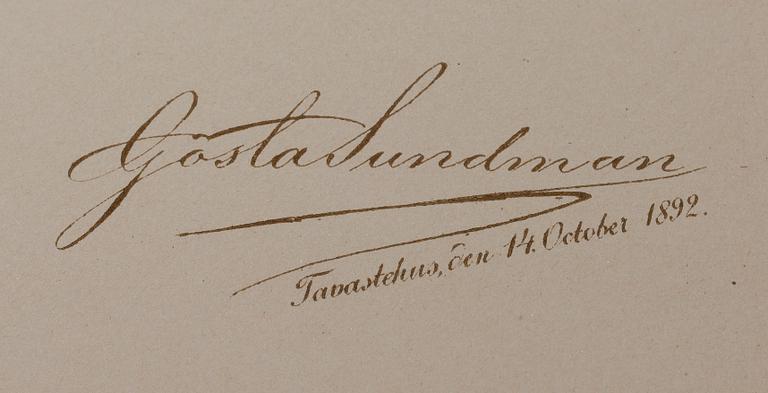 Gösta Sundman
Tavastehus, den 14. October 1892.